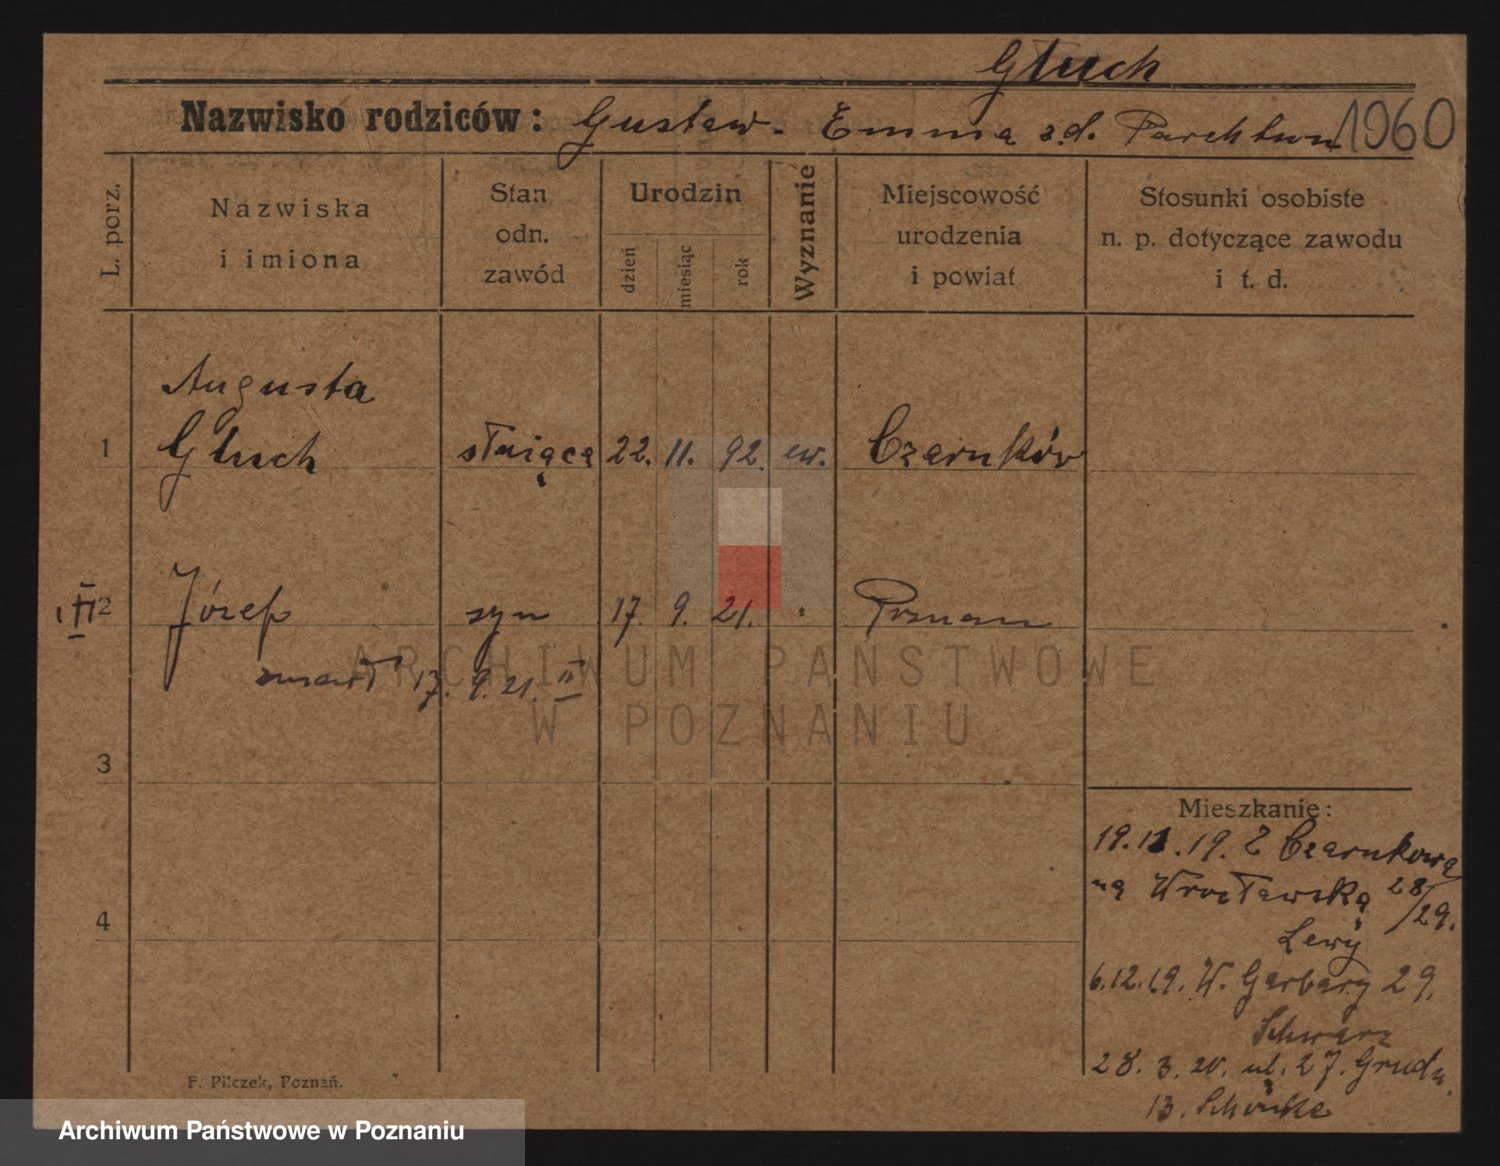 Głuch
Nazwisko rodziców: Gustaw. Emma z.d. 1060
L. porz.
Nazwiska
i imiona
Stan
odn.
zawód
Urodzin
dzień
miesiąc
rok
Wyznanie
Miejscowość
urodzenia
i powiat
Stosunki osobiste
n. p. dotyczące zawodu
i t. d.
Augusta
1 Głuch służąca 22. 11. 92. ew. Czarnków
2 Józef syn 17. 9. 21. " Poznań
zmarł 17. 9. 21. II
ARCHIWUM PAŃSTWOWE
W POZNANIU
3
4
Mieszkanie:
19.11.19. Z Czarnkowa
na Wrocławską 28/29.
Lewy
6.12.19. W. Garbary 29.
Schwarz
28. 3. 20. ul. 27. Grudn.
13. Schönke
F. Pilczek, Poznań.
Archiwum Państwowe w Poznaniu